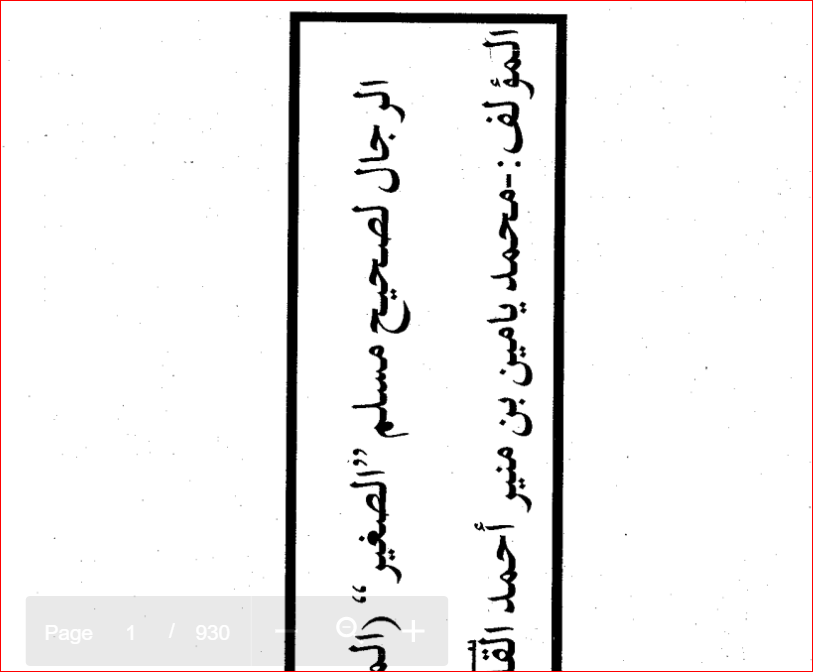 الرجال لصحيح مسلم ”الصغير“
المؤلف:-محمد يامين بن منير أحمد
Page 1 / 930